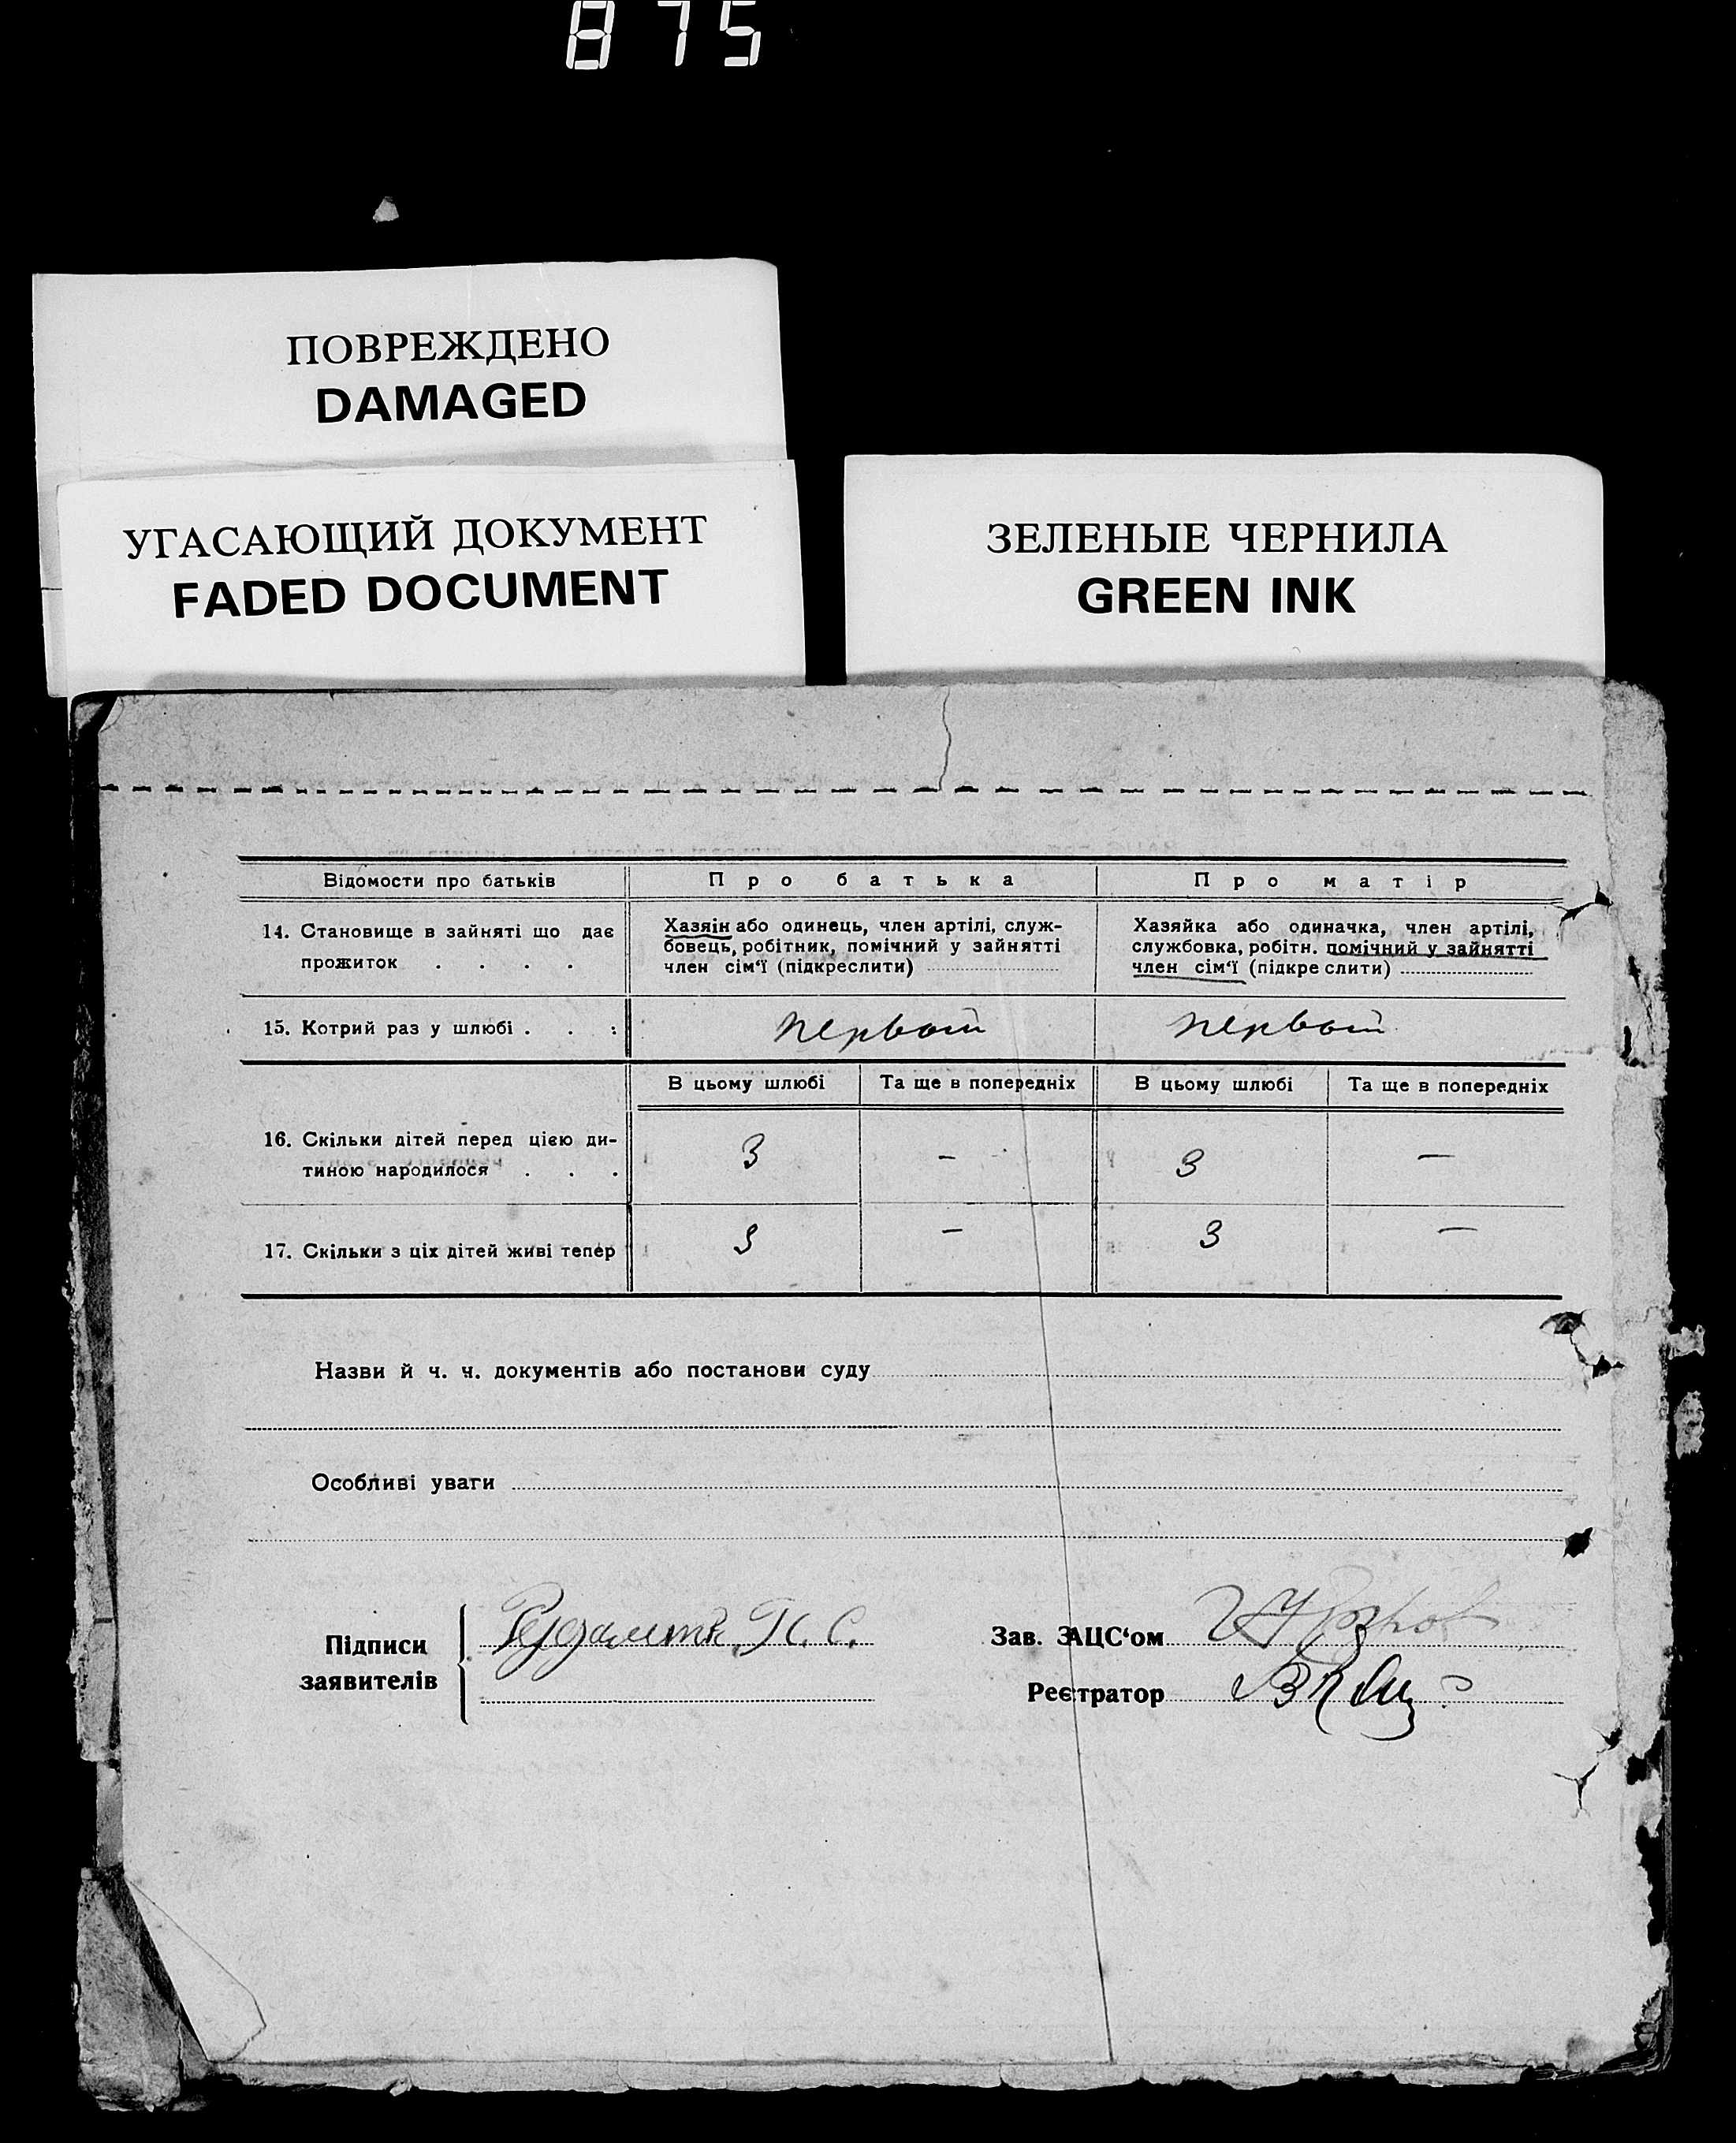 875
ПОВРЕЖДЕНО
DAMAGED
УГАСАЮЩИЙ ДОКУМЕНТ
FADED DOCUMENT
ЗЕЛЕНЫЕ ЧЕРНИЛА
GREEN INK
Відомости про батьків
Про батька
Про матір
14. Становище в зайняті що дає
прожиток . . . .
Хазяін або одинець, член артілі, служ-
бовець, робітник, помічний у зайнятті
член сім‘ї (підкреслити)
Хазяйка або одиначка, член артілі,
службовка, робітн. помічний у зайнятті
член сім‘ї (підкреслити)
15. Котрий раз у шлюбі . . :
первой
первой
В цьому шлюбі
Та ще в попередніх
В цьому шлюбі
Та ще в попередніх
16. Скільки дітей перед цією ди-
тиною народилося . . .
3
—
3
—
17. Скільки з ціх дітей живі тепер
3
—
3
—
Назви й ч. ч. документів або постанови суду
Особливі уваги
Підписи
заявителів
Зав. ЗАЦС‘ом
Реєтратор